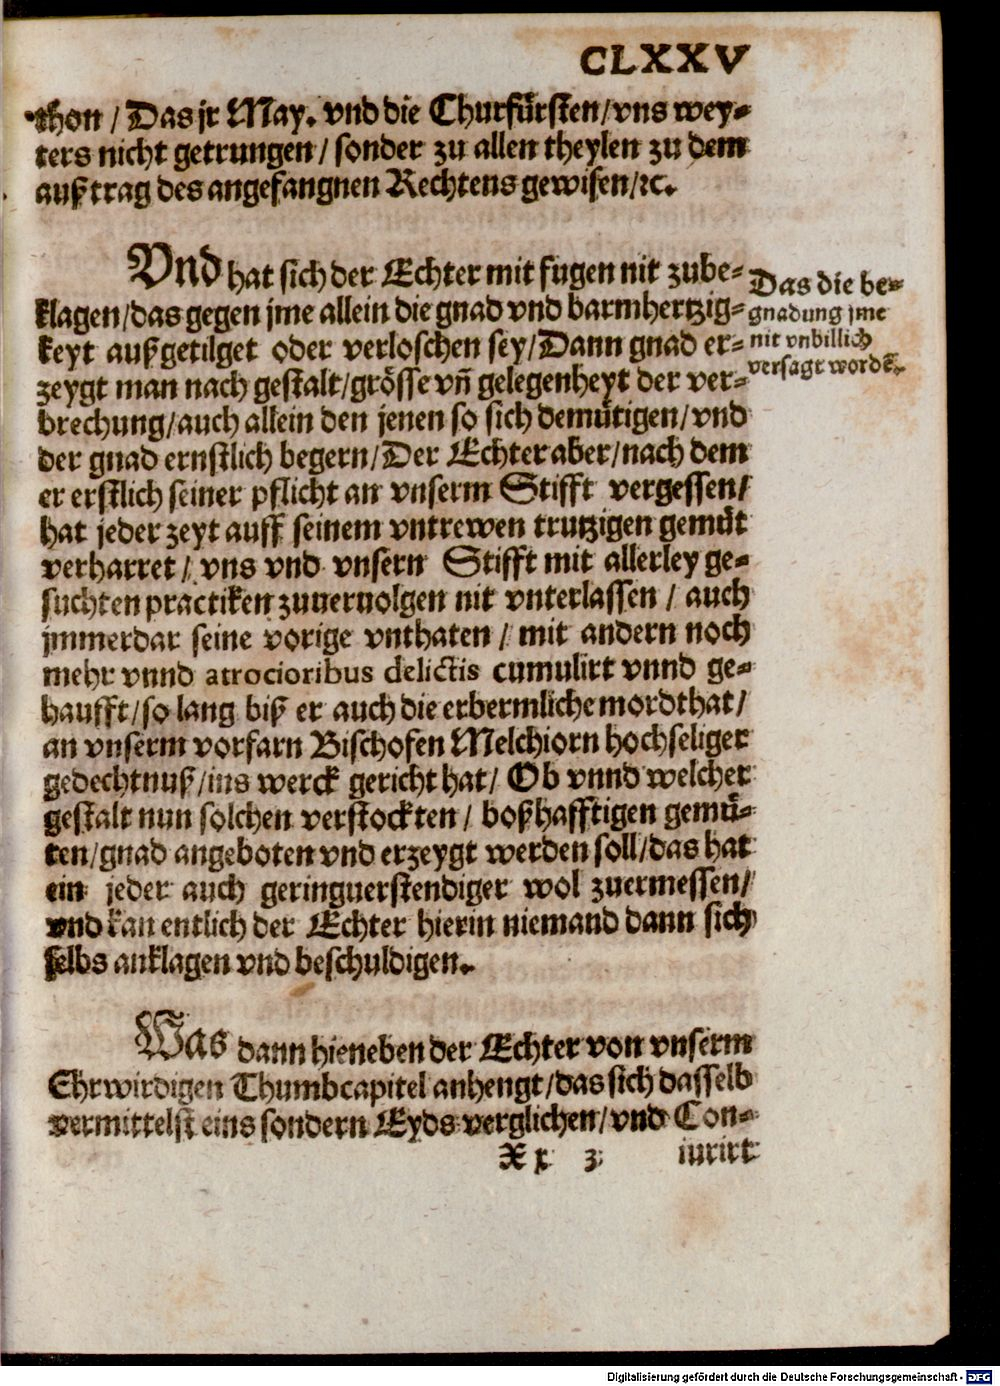 CLXXV
thon / Das jr May. vnd die Churfürsten / vns wey-
ters nicht getrungen / sonder zu allen theylen zu dem
außtrag des angefangnen Rechtens gewisen / ꝛc.
Vnd hat sich der Echter mit fugen nit zube-
klagen / das gegen jme allein die gnad vnd barmhertzig-
keyt außgetilget oder verloschen sey / Dann gnad er-
zeygt man nach gestalt / grösse vñ gelegenheyt der ver-
brechung / auch allein den jenen so sich demütigen / vnd
der gnad ernstlich begern / Der Echter aber / nach dem
er erstlich seiner pflicht an vnserm Stifft vergessen /
hat jeder zeyt auff seinem vntrewen trutzigen gemüt
verharret / vns vnd vnsern Stifft mit allerley ge-
suchten practiken zuueruolgen nit vnterlassen / auch
jmmerdar seine vorige vnthaten / mit andern noch
mehr vnnd atrocioribus delictis cumulirt vnnd ge-
haufft / so lang biß er auch die erbermliche mordthat /
an vnserm vorfarn Bischofen Melchiorn hochseliger
gedechtnuß / ins werck gericht hat / Ob vnnd welcher
gestalt nun solchen verstockten / boßhafftigen gemü-
ten / gnad angeboten vnd erzeygt werden soll / das hat
ein jeder auch geringuerstendiger wol zuermessen /
vnd kan entlich der Echter hierin niemand dann sich
selbs anklagen vnd beschuldigen.
Das die be-
gnadung jme
nit vnbillich
versagt wordẽ.
Was dann hieneben der Echter von vnserm
Ehrwirdigen Thumbcapitel anhengt / das sich dasselb
vermittelst eins sondern Eyds verglichen / vnd Con-
Xx 3 iurirt
Digitalisierung gefördert durch die Deutsche Forschungsgemeinschaft - DFG